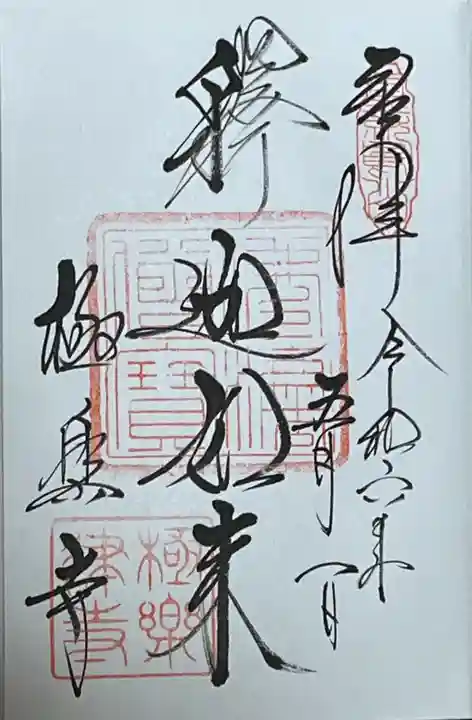 奉拝 令和六年
五月 一日
釋迦如来
極楽寺
極樂
律寺